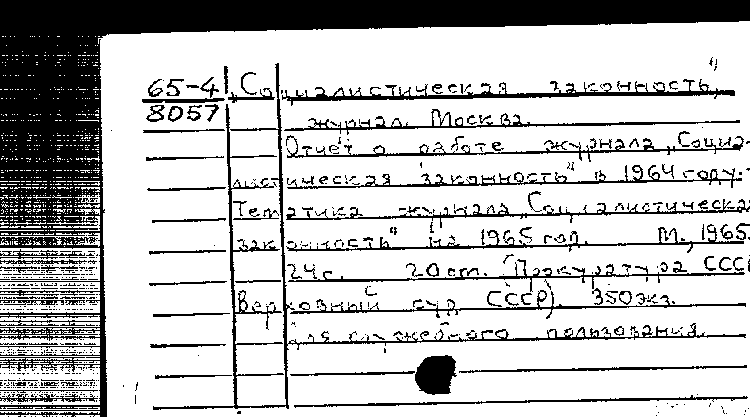 65-4 „Социалистическая законность",
8057 журнал. Москва.
Отчёт о работе журнала „Социа-
листическая законность" в 1964 году.
Тематика журнала „Социалистическая
законность" на 1965 год. М., 1965.
24с. 20см. (Прокуратура СССР
Верховный суд СССР). 350экз.
Для служебного пользования.